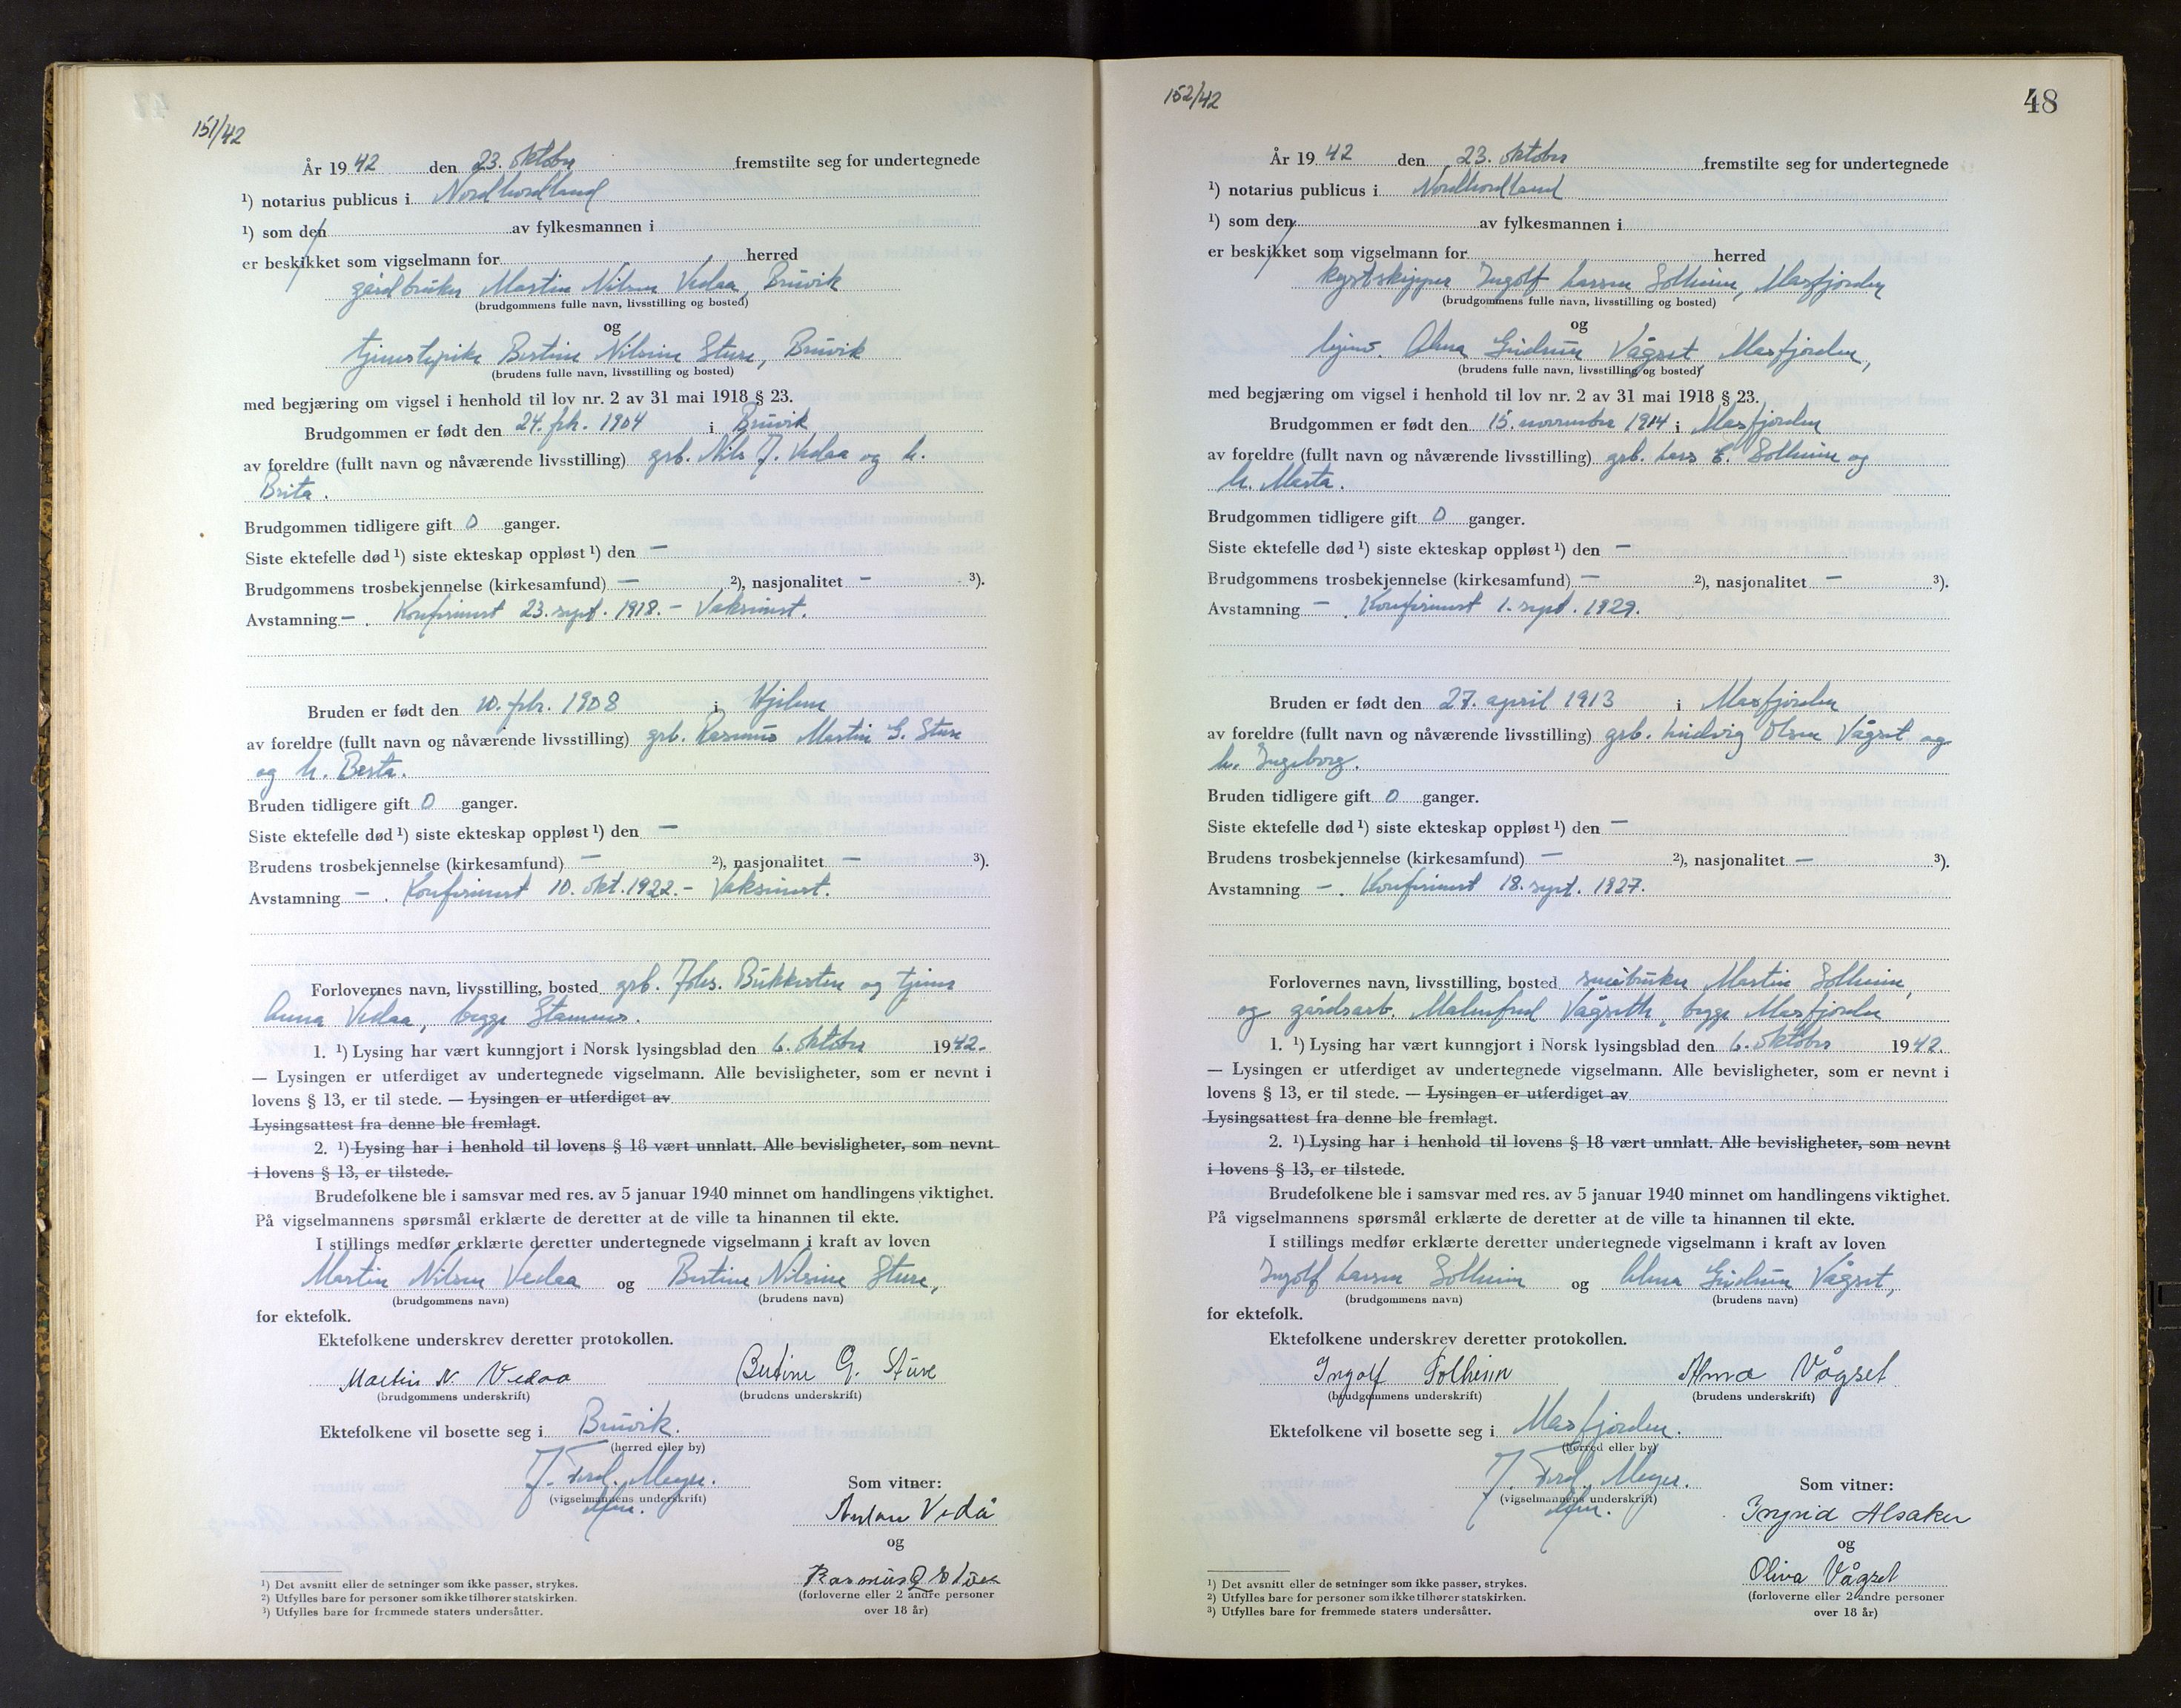 151/42
År 1942 den 23. oktober fremstilte seg for undertegnede
¹) notarius publicus i Nordhordland
¹) som den av fylkesmannen i
er beskikket som vigselmann for herred
gårdbruker Martin Nilsen Vedaa, Bruvik
(brudgommens fulle navn, livsstilling og bosted)
og
tjenestepike Bertine Nilsine Sture, Bruvik
(brudens fulle navn, livsstilling og bosted)
med begjæring om vigsel i henhold til lov nr. 2 av 31 mai 1918 § 23.
Brudgommen er født den 24. feb. 1904 i Bruvik
av foreldre (fullt navn og nåværende livsstilling) grb. Nils J. Vedaa og h.
Brita.
Brudgommen tidligere gift 0 ganger.
Siste ektefelle død ¹) siste ekteskap oppløst ¹) den —
Brudgommens trosbekjennelse (kirkesamfund) — ²), nasjonalitet — ³).
Avstamning — . Konfirmert 23. sept. 1918. – Vaksinert.
Bruden er født den 10. febr. 1908 i Hjelme
av foreldre (fullt navn og nåværende livsstilling) grb. Rasmus Martin G. Sture
og h. Berta.
Bruden tidligere gift 0 ganger.
Siste ektefelle død ¹) siste ekteskap oppløst ¹) den —
Brudens trosbekjennelse (kirkesamfund) — ²), nasjonalitet — ³).
Avstamning — . Konfirmert 10. okt. 1922. – Vaksinert.
Forlovernes navn, livsstilling, bosted grb. Johs. Bukkesten og tjener
Anna Vedaa, begge Stamnes.
1. ¹) Lysing har vært kunngjort i Norsk lysingsblad den 6. oktober 1942.
— Lysingen er utferdiget av undertegnede vigselmann. Alle bevisligheter, som er nevnt i
lovens § 13, er til stede. — Lysingen er utferdiget av
Lysingsattest fra denne ble fremlagt.
2. ¹) Lysing har i henhold til lovens § 18 vært unnlatt. Alle bevisligheter, som nevnt
i lovens § 13, er tilstede.
Brudefolkene ble i samsvar med res. av 5 januar 1940 minnet om handlingens viktighet.
På vigselmannens spørsmål erklærte de deretter at de ville ta hinannen til ekte.
I stillings medfør erklærte deretter undertegnede vigselmann i kraft av loven
Martin Nilsen Vedaa og Bertine Nilsine Sture,
(brudgommens navn) (brudens navn)
for ektefolk.
Ektefolkene underskrev deretter protokollen.
Martin N Vedaa Bertine G. Sture
(brudgommens underskrift) (brudens underskrift)
Ektefolkene vil bosette seg i Bruvik.
(herred eller by)
J. Ferd. Meyer.
(vigselmannens underskrift)
Som vitner:
Anton Vedå
og
Rasmus G Sture
(forloverne eller 2 andre personer
over 18 år)
¹) Det avsnitt eller de setninger som ikke passer, strykes.
²) Utfylles bare for personer som ikke tilhører statskirken.
³) Utfylles bare for fremmede staters undersåtter.
152/42
48
År 1942 den 23. oktober fremstilte seg for undertegnede
¹) notarius publicus i Nordhordland
¹) som den av fylkesmannen i
er beskikket som vigselmann for herred
kystskipper Ingolf Larsen Solheim, Masfjorden
(brudgommens fulle navn, livsstilling og bosted)
og
hjemv. Alma Gudrun Vågset Masfjorden,
(brudens fulle navn, livsstilling og bosted)
med begjæring om vigsel i henhold til lov nr. 2 av 31 mai 1918 § 23.
Brudgommen er født den 15. november 1914 i Masfjorden
av foreldre (fullt navn og nåværende livsstilling) grb. Lars E. Solheim og
h. Marta.
Brudgommen tidligere gift 0 ganger.
Siste ektefelle død ¹) siste ekteskap oppløst ¹) den —
Brudgommens trosbekjennelse (kirkesamfund) — ²), nasjonalitet — ³).
Avstamning — . Konfirmert 1. sept. 1929.
Bruden er født den 27. april 1913 i Masfjorden
av foreldre (fullt navn og nåværende livsstilling) grb. Ludvig Olsen Vågset og
h. Ingeborg.
Bruden tidligere gift 0 ganger.
Siste ektefelle død ¹) siste ekteskap oppløst ¹) den —
Brudens trosbekjennelse (kirkesamfund) — ²), nasjonalitet — ³).
Avstamning — . Konfirmert 18. sept. 1927.
Forlovernes navn, livsstilling, bosted småbruker Martin Solheim,
og gårdsarb. Malmfred Vågseth, begge Masfjorden
1. ¹) Lysing har vært kunngjort i Norsk lysingsblad den 6. oktober 1942.
— Lysingen er utferdiget av undertegnede vigselmann. Alle bevisligheter, som er nevnt i
lovens § 13, er til stede. — Lysingen er utferdiget av
Lysingsattest fra denne ble fremlagt.
2. ¹) Lysing har i henhold til lovens § 18 vært unnlatt. Alle bevisligheter, som nevnt
i lovens § 13, er tilstede.
Brudefolkene ble i samsvar med res. av 5 januar 1940 minnet om handlingens viktighet.
På vigselmannens spørsmål erklærte de deretter at de ville ta hinannen til ekte.
I stillings medfør erklærte deretter undertegnede vigselmann i kraft av loven
Ingolf Larsen Solheim og Alma Gudrun Vågset,
(brudgommens navn) (brudens navn)
for ektefolk.
Ektefolkene underskrev deretter protokollen.
Ingolf Solheim Alma Vågset
(brudgommens underskrift) (brudens underskrift)
Ektefolkene vil bosette seg i Masfjorden.
(herred eller by)
J. Ferd. Meyer.
(vigselmannens underskrift)
Som vitner:
Ingrid Alsaker
og
Oliva Vågset
(forloverne eller 2 andre personer
over 18 år)
¹) Det avsnitt eller de setninger som ikke passer, strykes.
²) Utfylles bare for personer som ikke tilhører statskirken.
³) Utfylles bare for fremmede staters undersåtter.